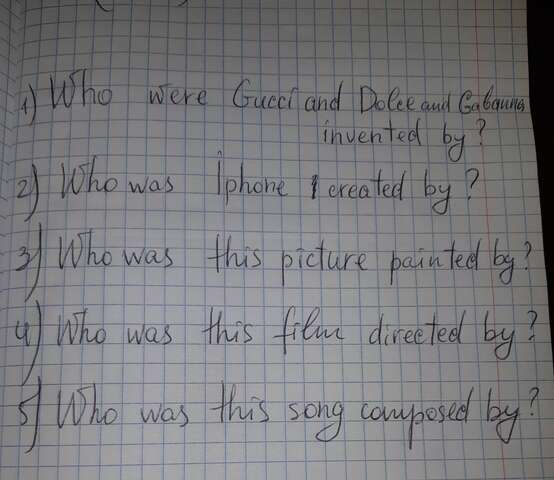 1) Who were Gucci and Dolce and Gabanna
invented by?
2) Who was Iphone created by?
3) Who was this picture painted by?
4) Who was this film directed by?
5) Who was this song composed by?